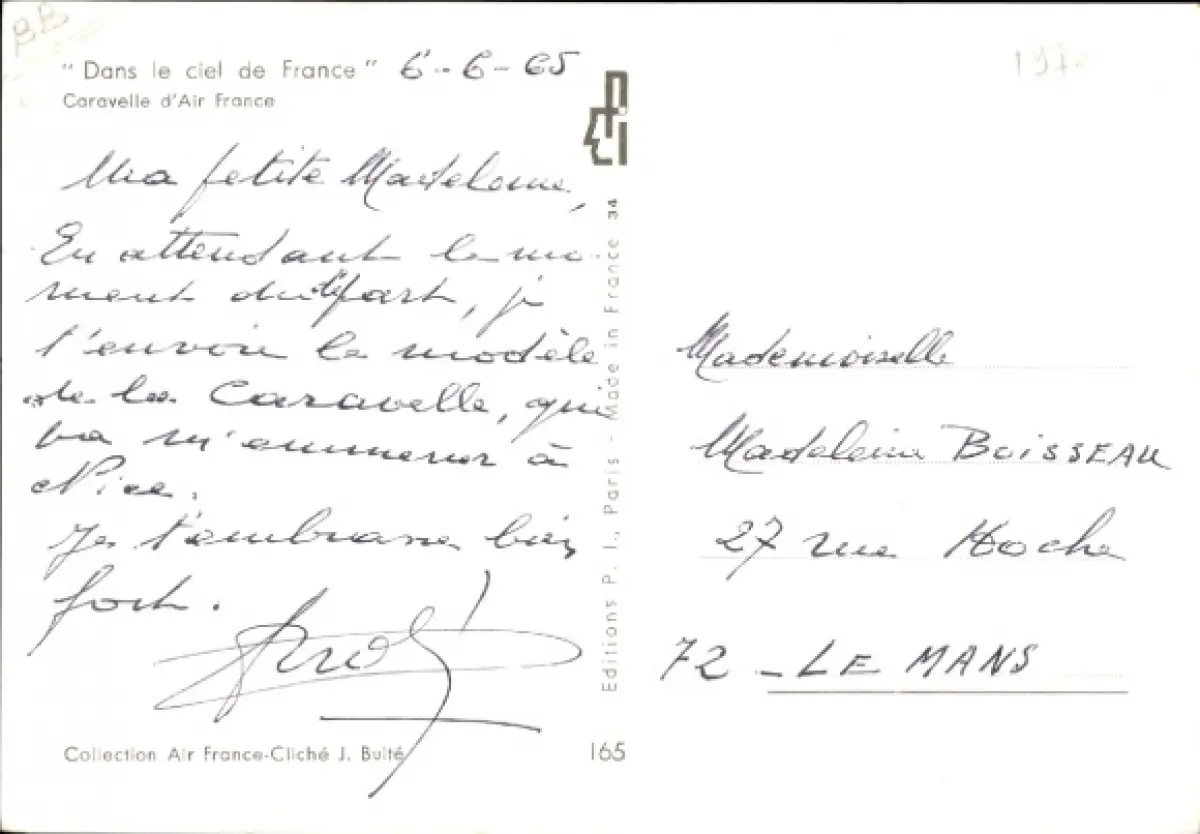 BB
"Dans le ciel de France" 6-6-65
Caravelle d'Air France
Ma petite Madeleine,
En attendant le mo-
ment du départ, je
t'envoie le modèle
de la Caravelle, qui
va m'emmener à
Nice.
Je t'embrasse bien
fort.
Collection Air France-Cliché J. Buité
Editions P. I., Paris - Made in France 34
165
Mademoiselle
Madeleine BOISSEAU
27 rue Hoche
72 - LE MANS